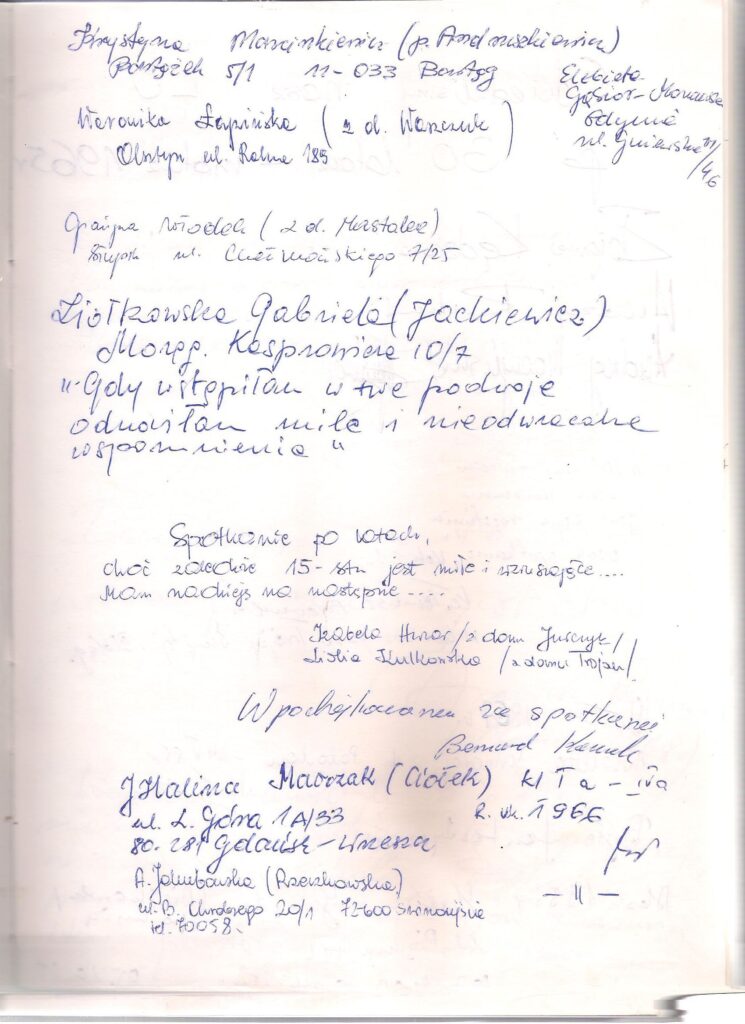 Krystyna Marcinkiewicz (p. Andruszkiewicz)
Bartążek 5/1 11-033 Bartąg
Elżbieta
Gąsior-
Gdynia
ul. Gniewska
/46
Weronika Łapińska (z d. Warszuk)
Olsztyn ul. Rolna 189
Grażyna Włodek (z d. Mastalec)
ul. Chełmońskiego 7/25
Ziółkowska Gabriela (Jackiewicz)
Morąg. Kasprowicza 10/7
"Gdy wstąpiłam w twe podwoje
odnosiłam miłe i nieodwracalne
wspomnienia"
Spotkanie po latach,
choć zaledwie 15-stu jest miłe i wzruszające....
Mam nadzieję na następne ....
Izabela Huzar /z domu Jurczyk/
Lidia Kulkowska /z domu Trojan/
W podziękowaniu za spotkanie
Bernard
Halina Marczak (Ciołek) kl I a - IVa
ul. L. Góra 1A/33 R. uk. 1966
80-281 Gdańsk-
A. Jakubowska (Rzeszkowska) — 11 —
ul. B. Chrobrego 20/1 72-600 Świnoujście
tel. 70058.